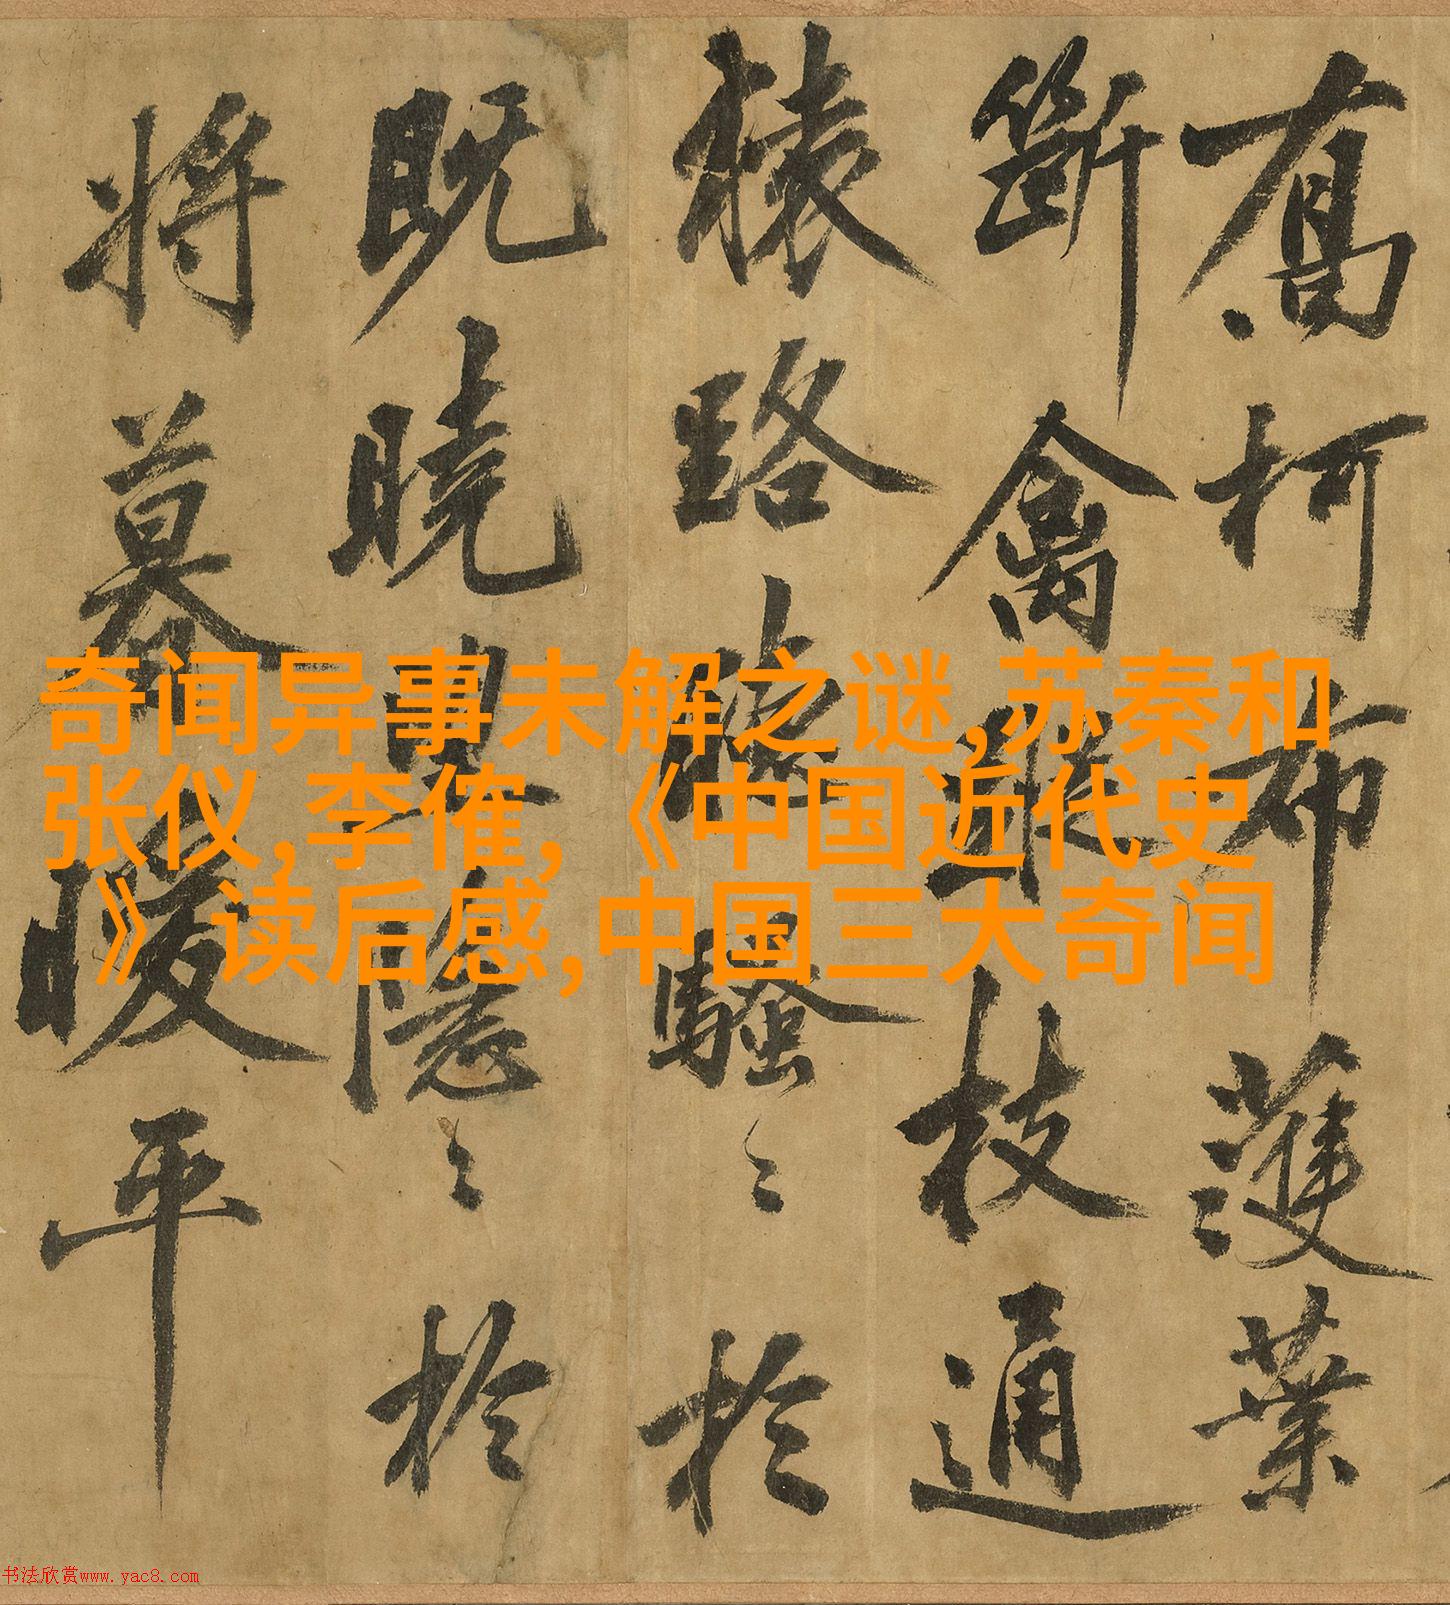 喬柯布濩葉
斷禽枝通
猿路騷〻於
既曉隱〻於
將暮暖平
奇闻异事未解之谜,苏秦和
张仪,李傕,《中国近代史
》读后感,中国三大奇闻
书法欣赏www.yac8.com